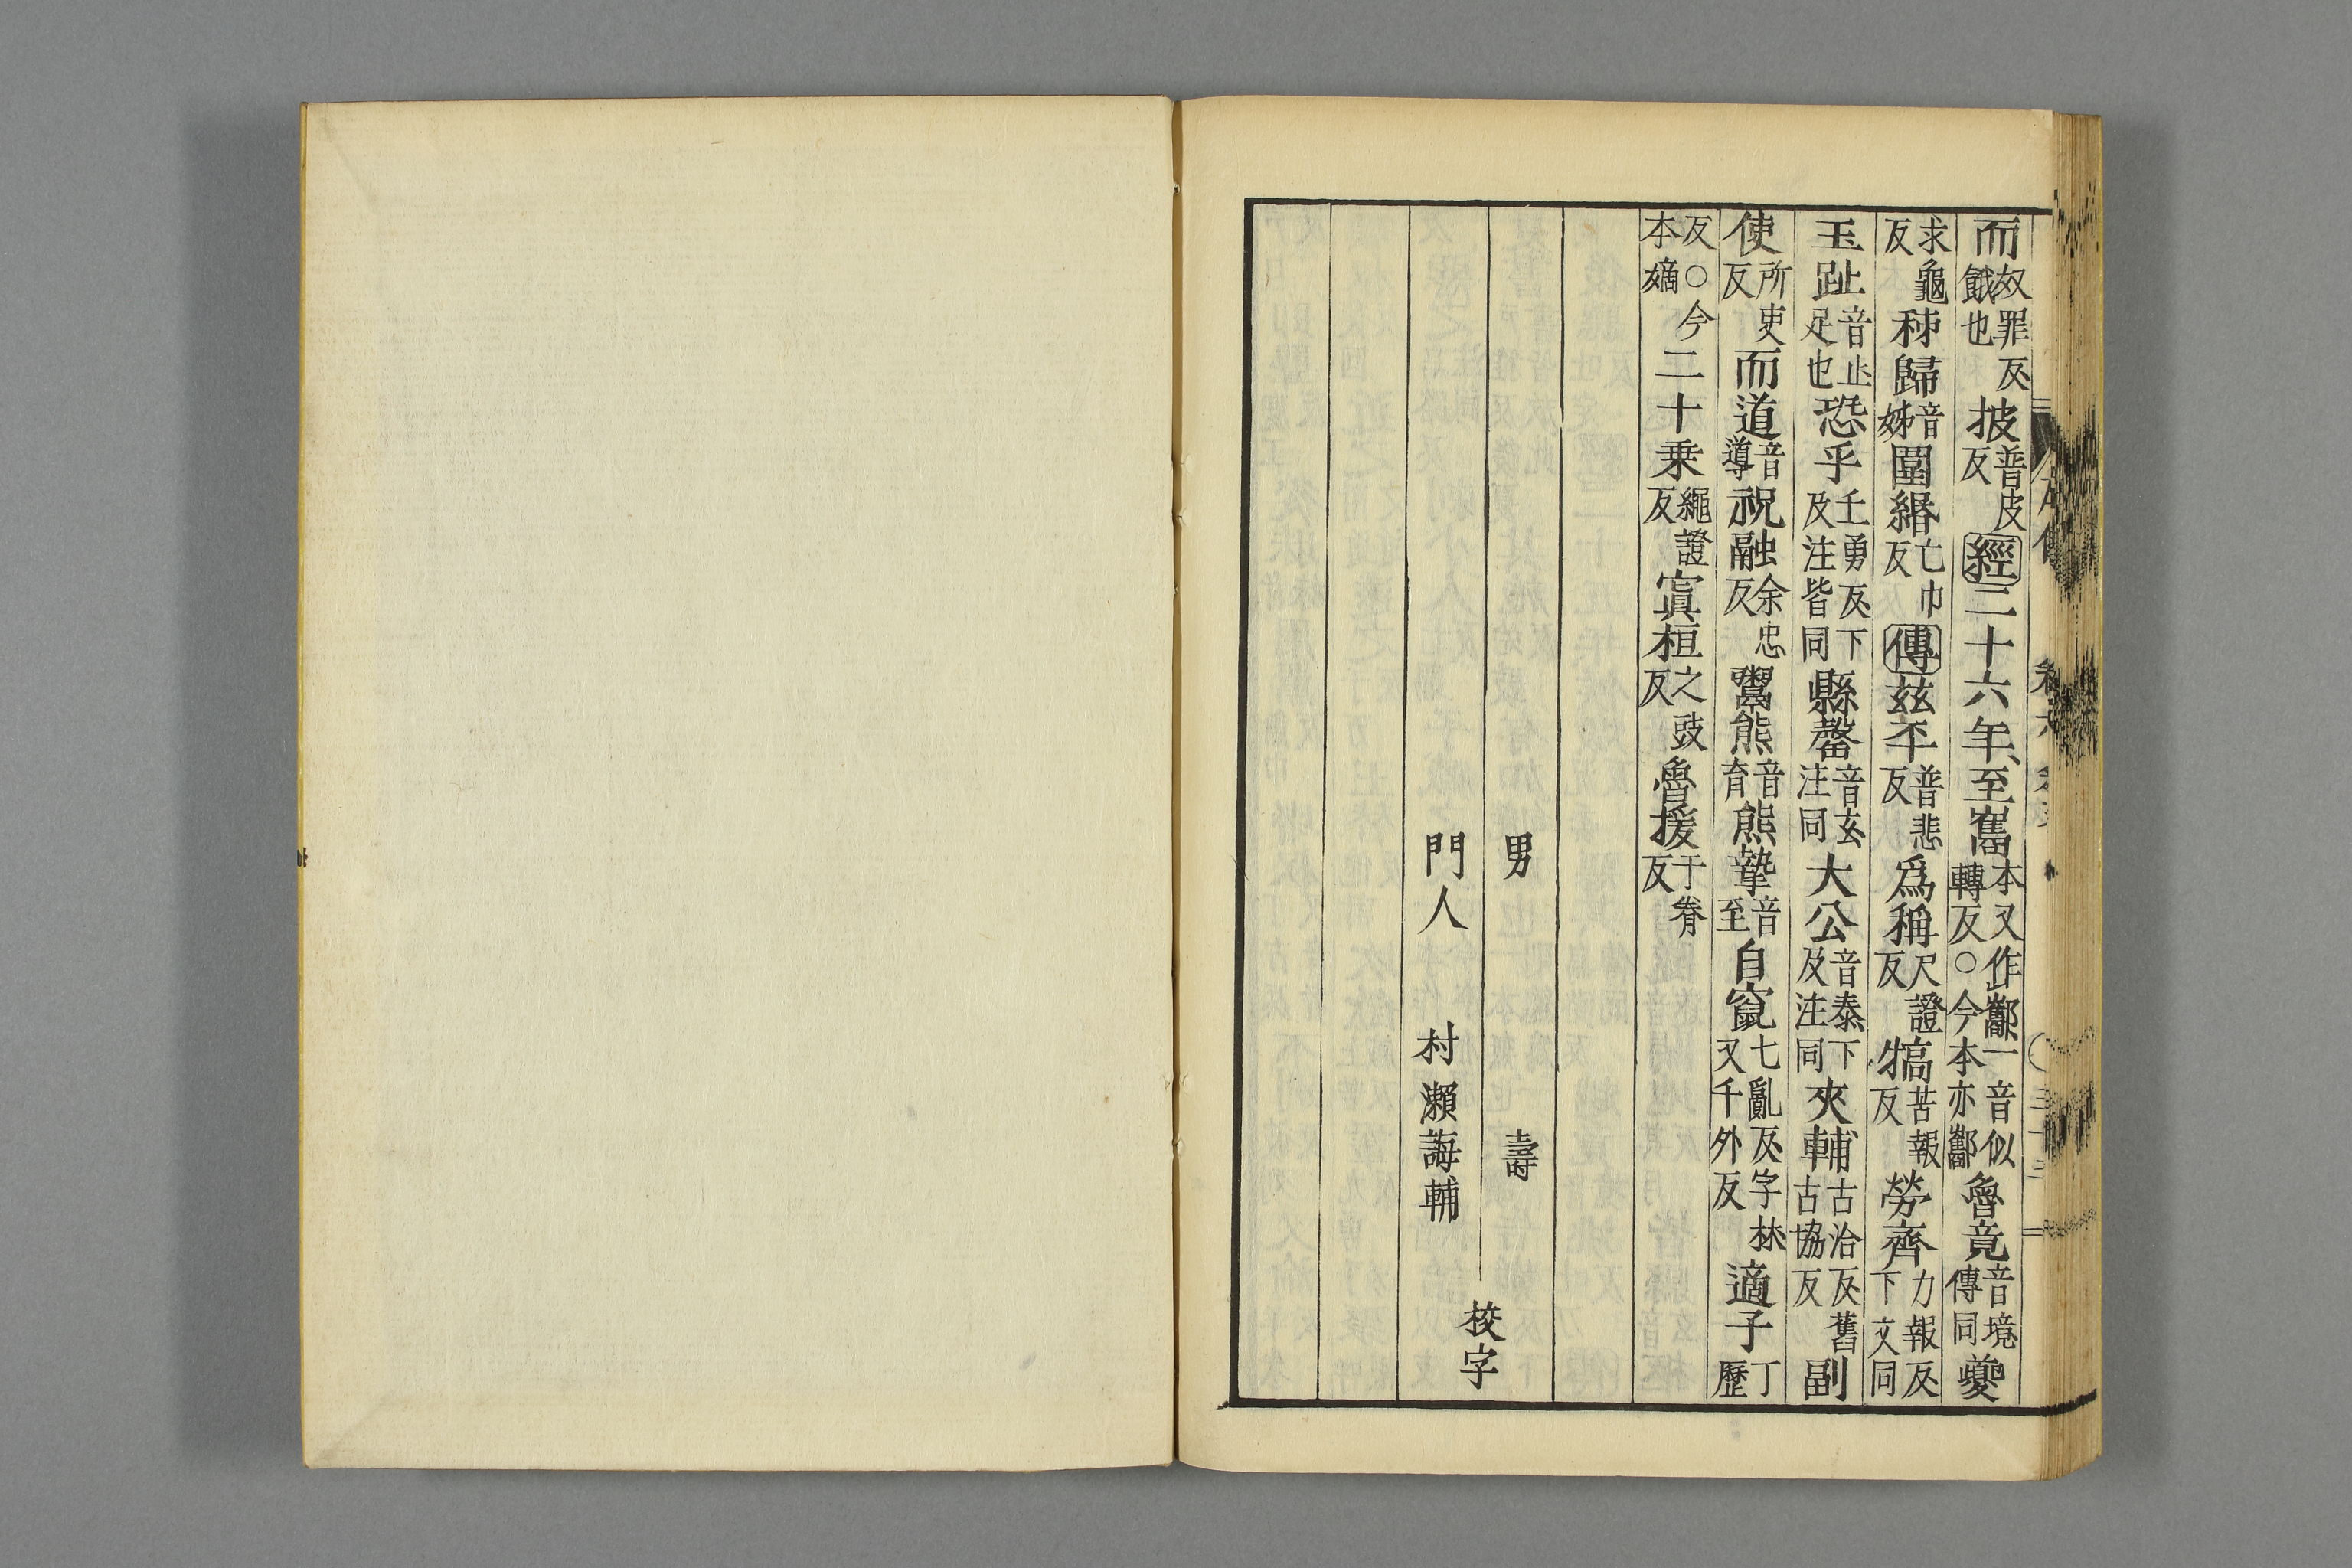 而奴罪反餓也披普皮反經二十六年、至巂本又作酅一音似轉反○今本亦酅魯竟音境傳同夔
求龜反秭歸音姊圍緡亡巾反傳玆丕普悲反爲稱尺證反犒苦報反勞齊力報反下文同
玉趾音止足也恐乎丘勇反下及注皆同縣罄音玄注同大公音泰下及注同夾輔古洽反舊古協反副
使所吏反而道音導祝融余忠反鬻熊音育熊摯音至自竄七亂反字林又千外反適子丁歷
反○今本嫡二十乗繩證反寘桓之豉反魯援于眷反
男　壽
門人　村瀨誨輔
校字